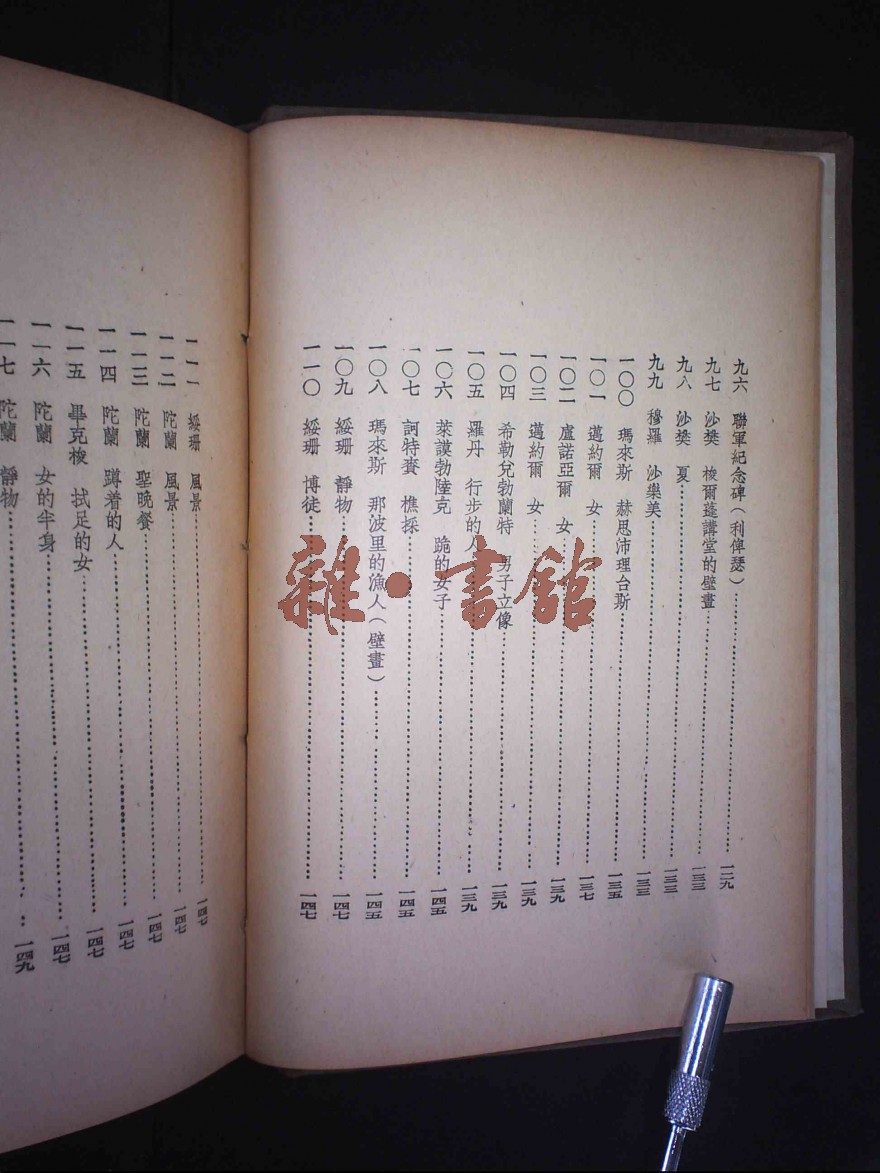 九六 聯軍紀念碑(利俾瑟)……一二九
九七 沙樊 梭爾蓬講堂的壁畫……一三三
九八 沙樊 夏……一三三
九九 穆羅 沙樂美……一三三
一〇〇 瑪來斯 赫思沛理台斯……一三五
一〇一 邁約爾 女……一三七
一〇二 盧諾亞爾 女……一三九
一〇三 邁約爾 女……一三九
一〇四 希勒兌勃蘭特 男子立像……一三九
一〇五 羅丹 行步的人……一三九
一〇六 萊謨勃陸克 跪的女子……一四五
一〇七 訶特賚 樵採……一四五
一〇八 瑪來斯 那波里的漁人(壁畫)……一四五
一〇九 綏珊 靜物……一四七
一一〇 綏珊 博徒……一四七
一一一 綏珊 風景……一四七
一一二 陀蘭 風景……一四七
一一三 陀蘭 聖晚餐……一四七
一一四 陀蘭 蹲着的人……一四七
一一五 畢克梭 拭足的女……一四七
一一六 陀蘭 女的半身……一四七
一一七 陀蘭 靜物……一四九
雜·書館